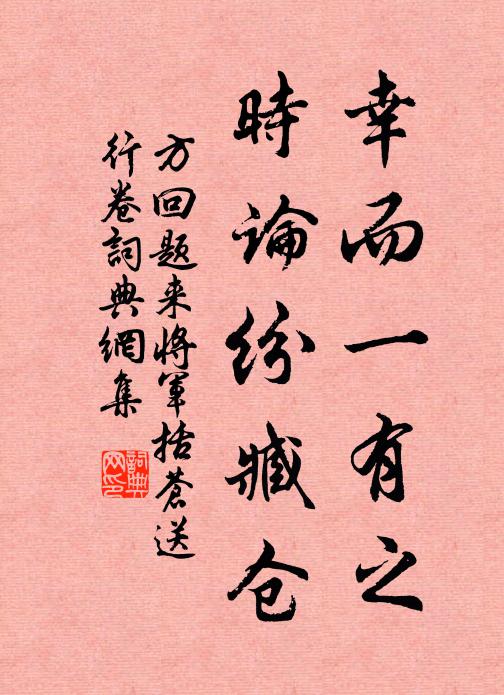 幸而一有之
時論紛臧仓
方回题来將軍括蒼送
行卷詞典網集
詞典网印